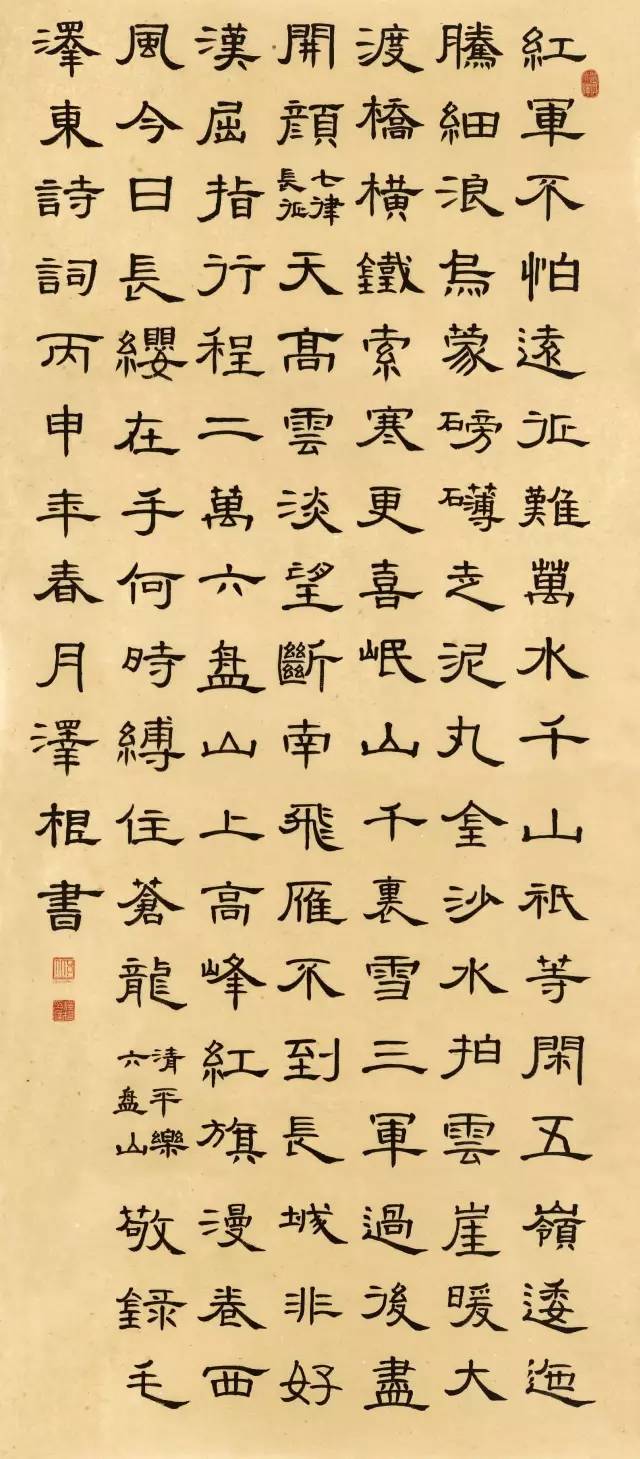 紅軍不怕遠征難萬水千山祇等閑五嶺逶迤
騰細浪烏蒙磅礴走泥丸金沙水拍雲崖暖大
渡橋橫鐵索寒更喜岷山千裏雪三軍過後盡
開顏七律長征天髙雲淡望斷南飛雁不到長城非好
漢屈指行程二萬六盘山上高峰紅旗漫卷西
風今日長纓在手何時縛住蒼龍清平樂六盘山敬録毛
澤東詩詞丙申年春月澤根書